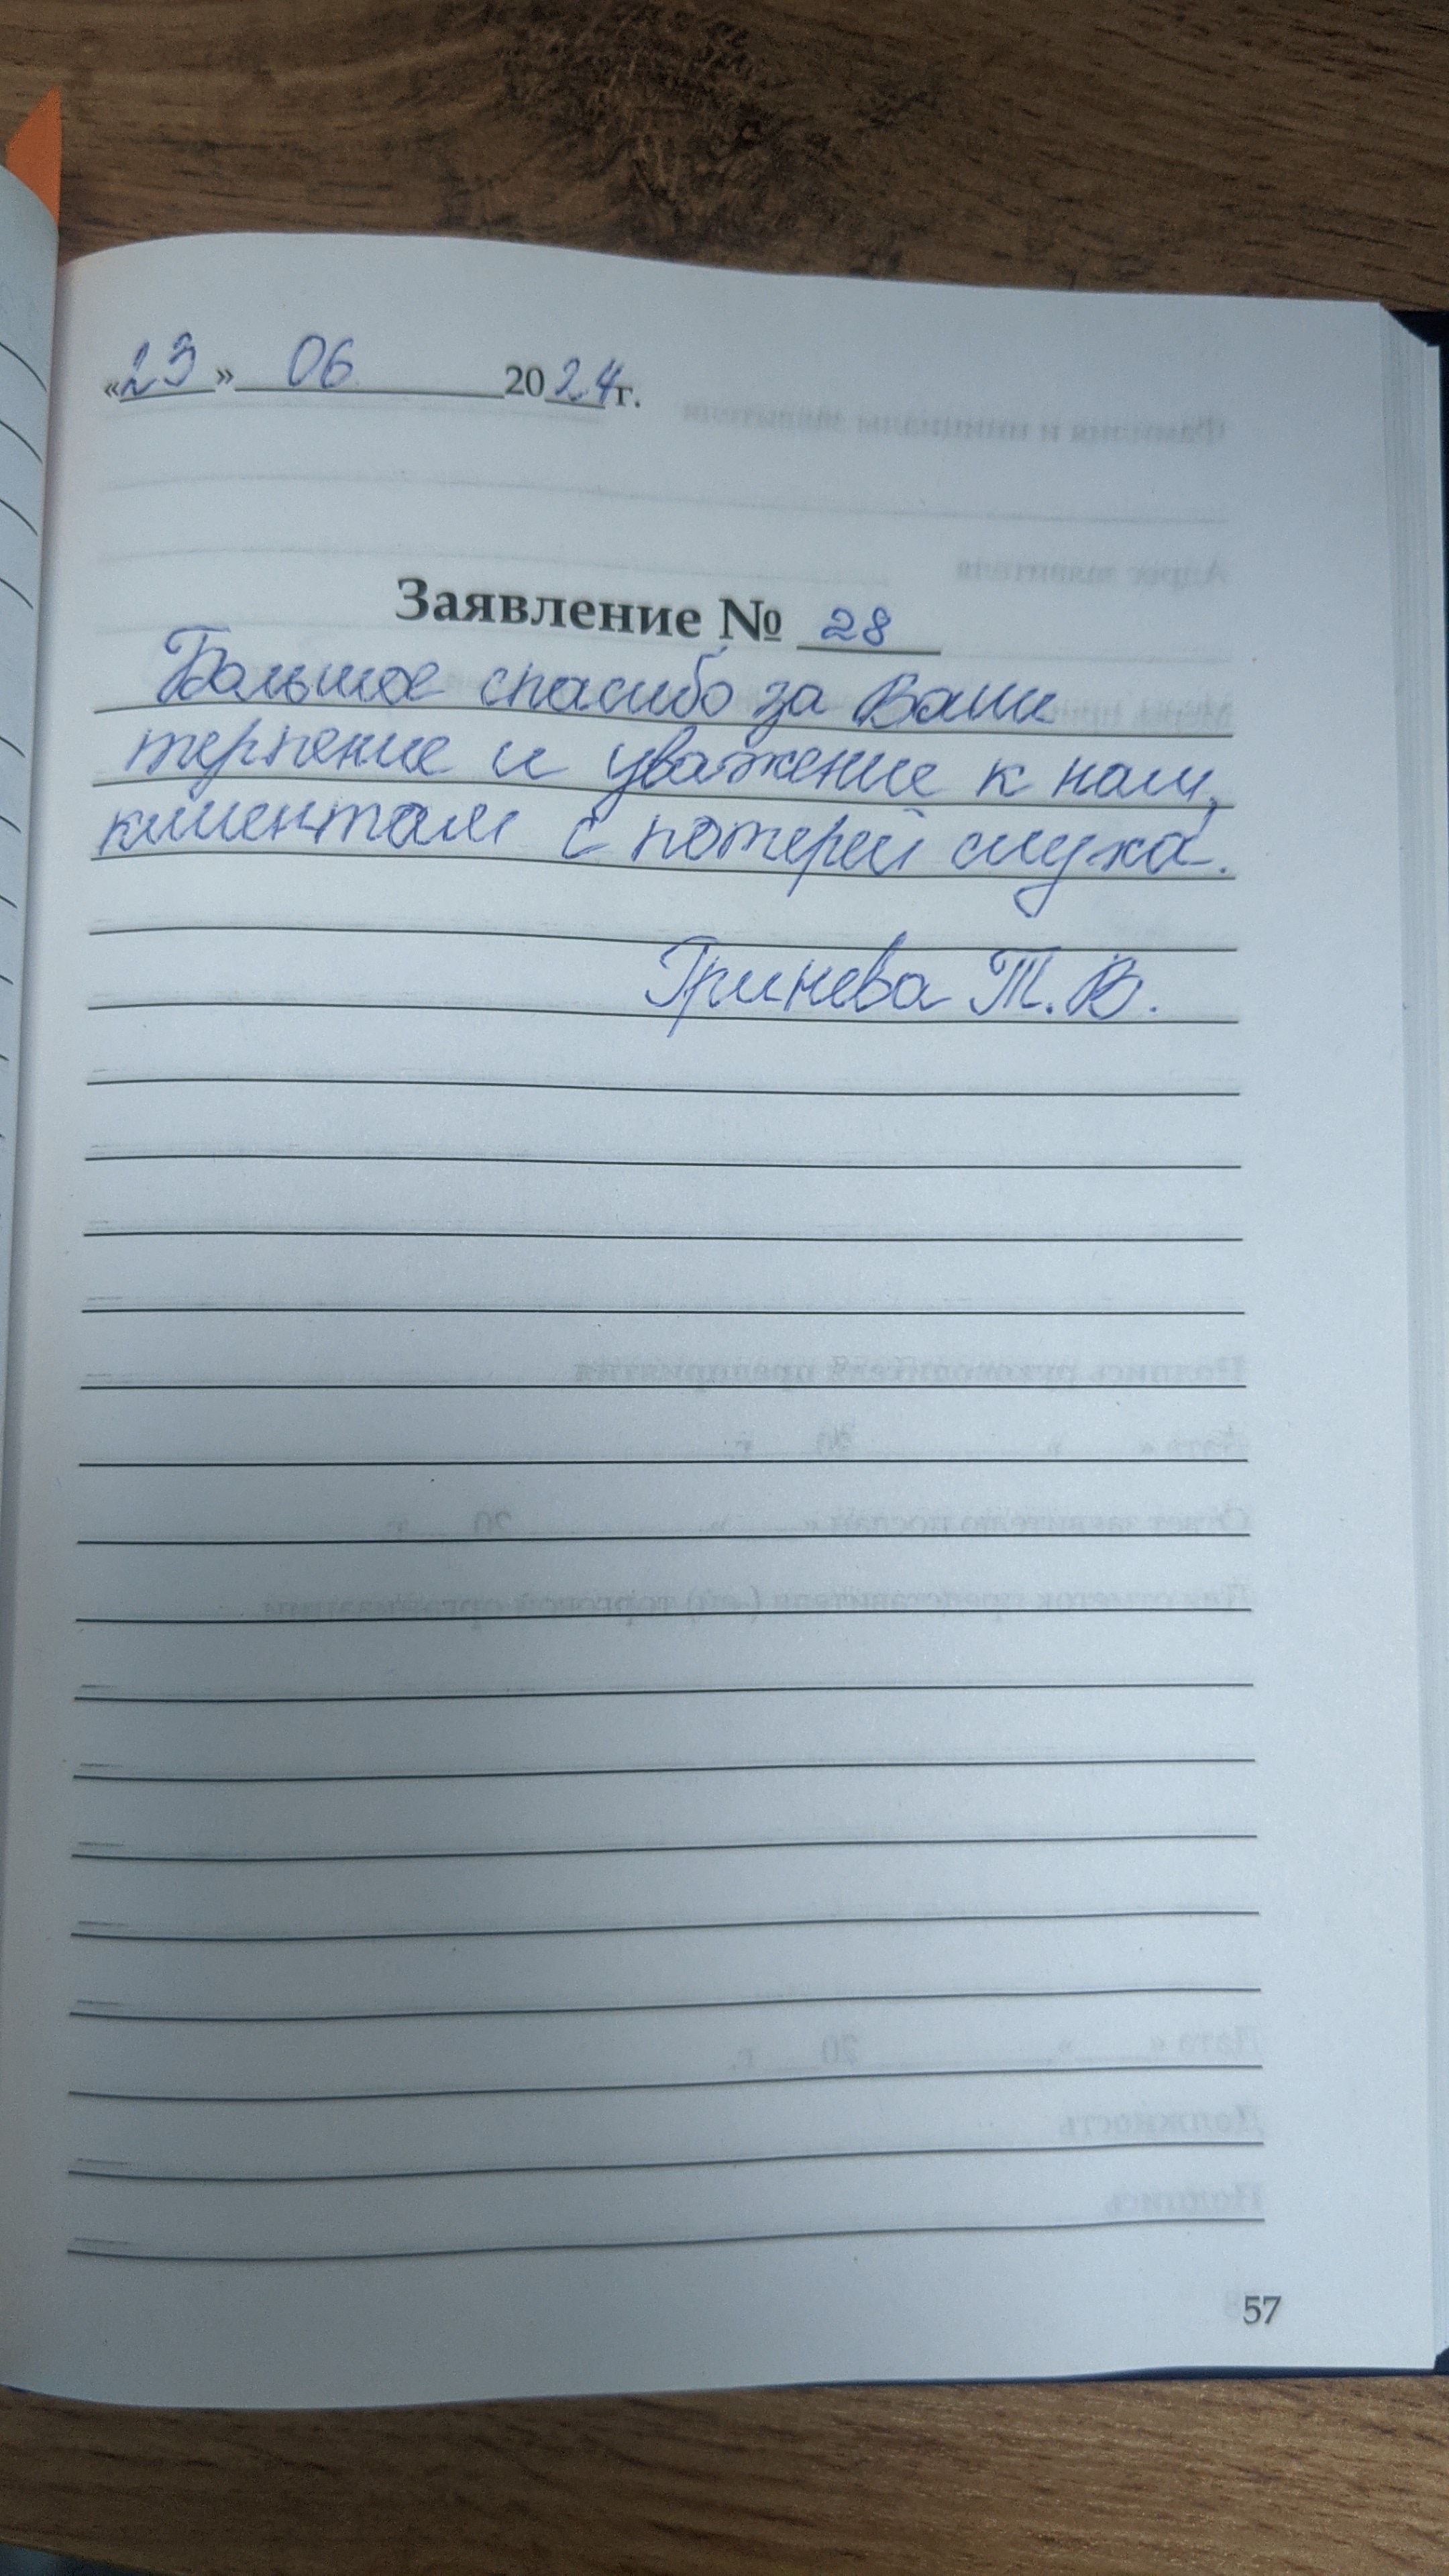 «23» 06 2024г.
Заявление № 28
Большое спасибо за Ваши
терпение и уважение к нам,
клиентам с потерей слуха.
Гринева Т.В.
57